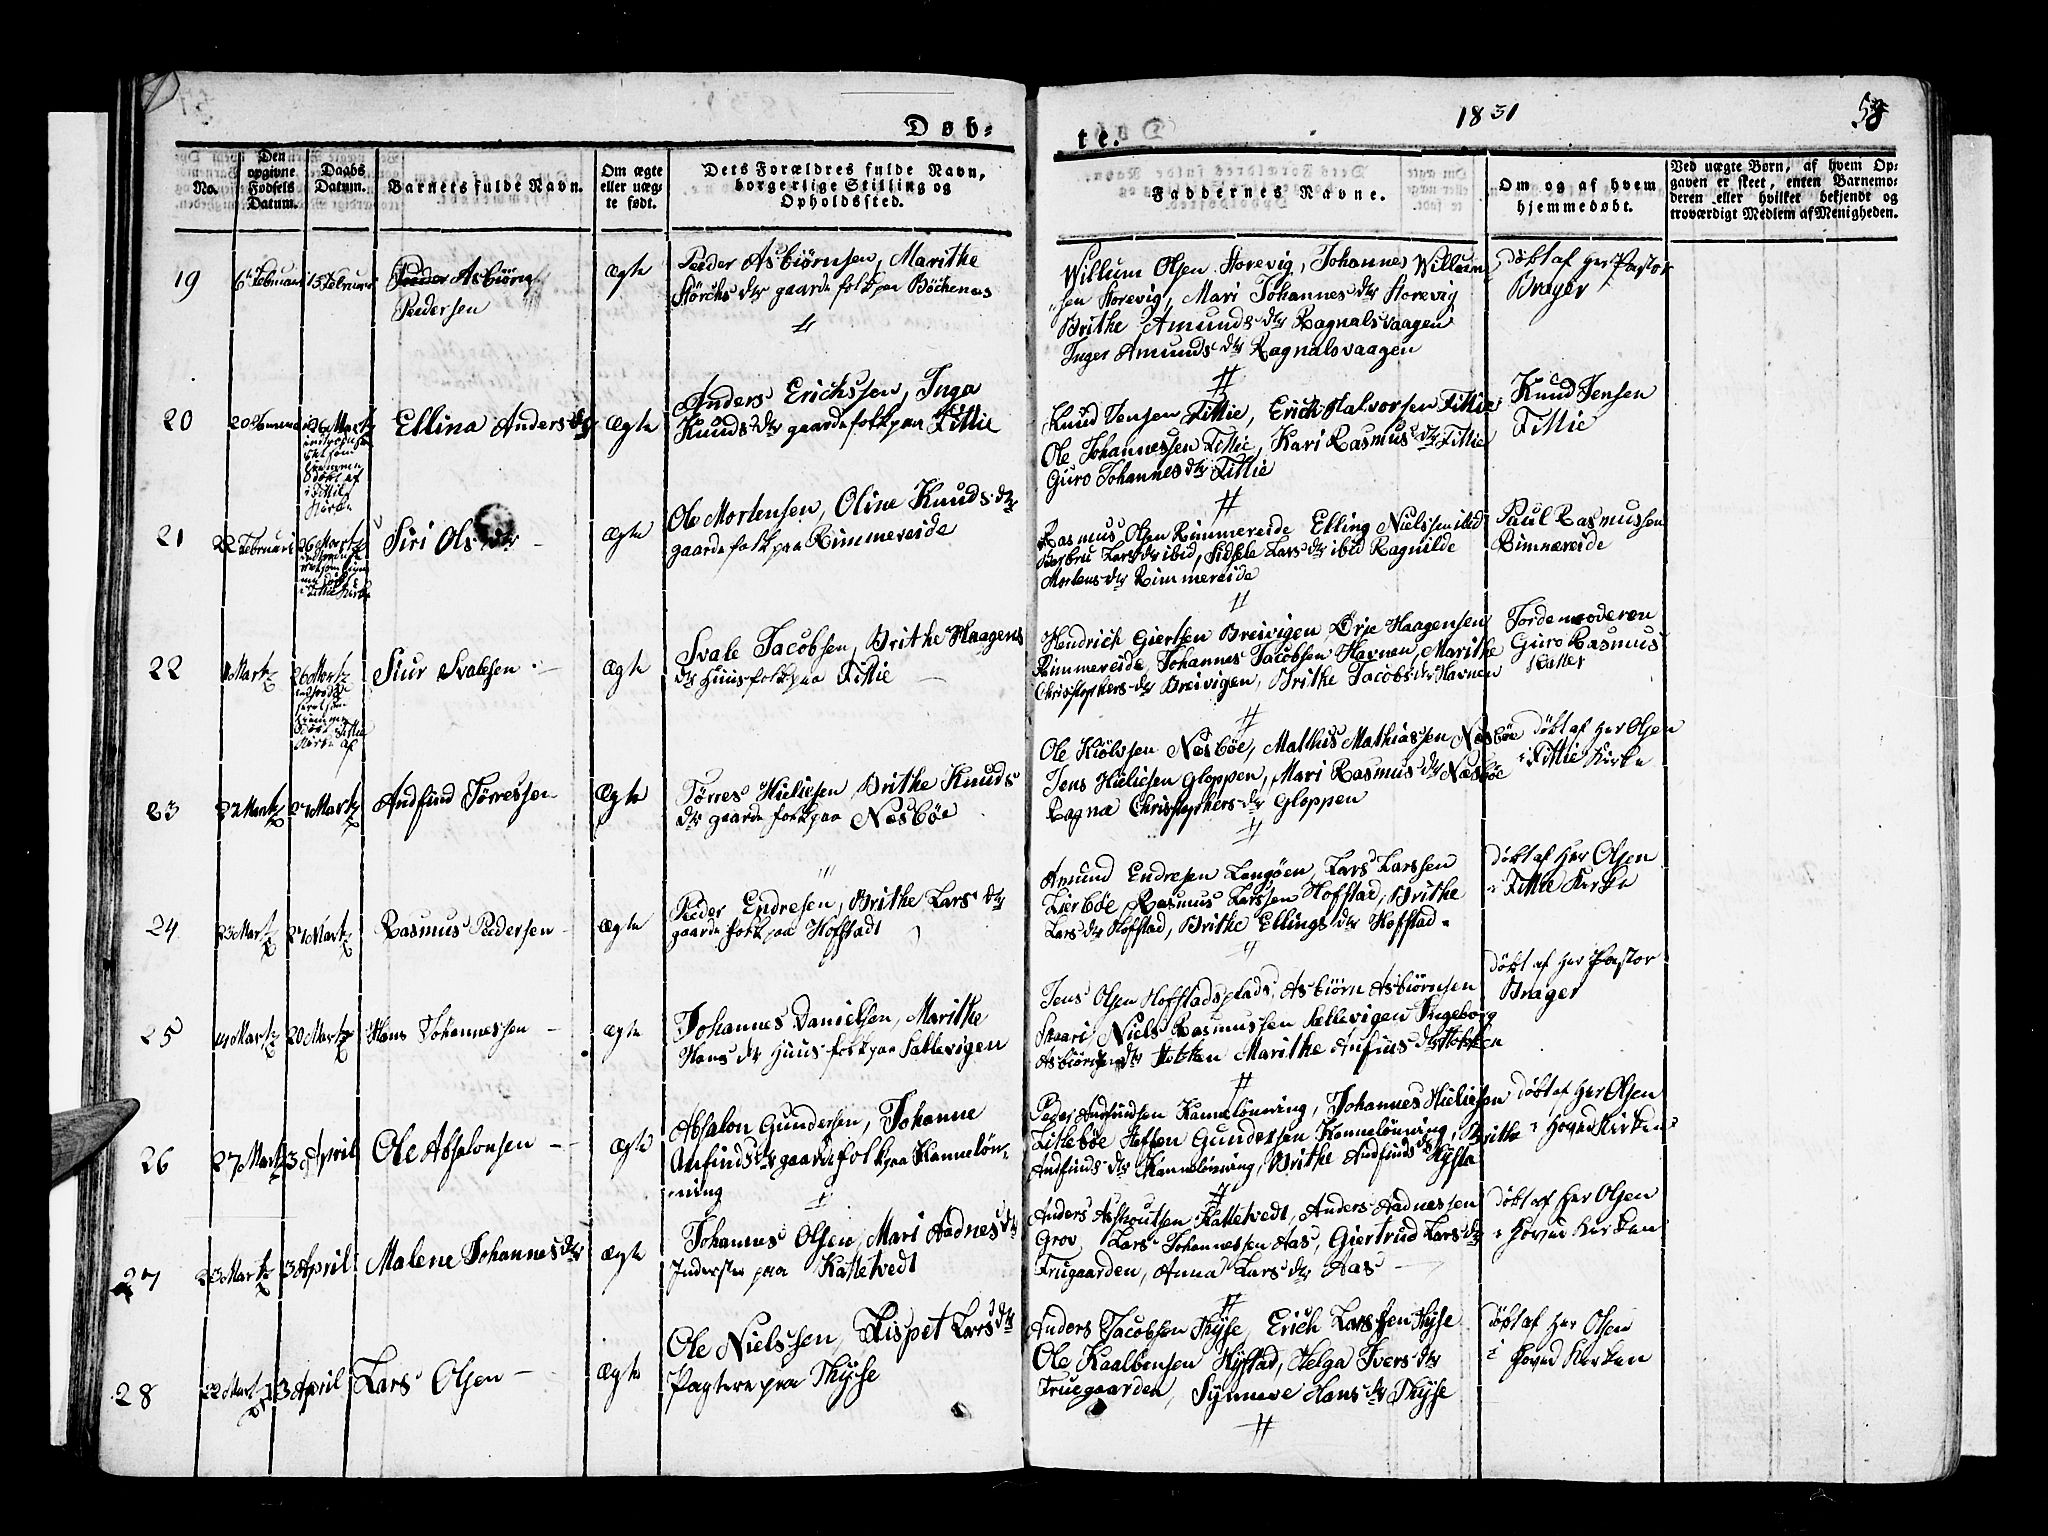 Døb-
te.
1831
58
No.
Den opgivne Fødsels Datum.
Daabs Datum.
Barnets fulde Navn.
Om ægte eller uægte født.
Dets Forældres fulde Navn, borgerlige Stilling og Opholdssted.
Faddernes Navne.
Om og af hvem hjemmedøbt.
Ved uægte Børn, af hvem Opgaven er skeet, enten Barnemoderen eller hvilket bekjendt og troværdigt Medlem af Menigheden.
19
6te Februari
13 Februari
Peeder Asbiörn
Pedersen
Ægte
Peder Asbiörnsen, Marithe
Störchs dtr gaardefolk paa Böckenes
Willum Olsen Storevig, Johannes Willum
sen Storevig, Mari Johannes dtr Storevig
Brithe Amunds dtr Ragnalsvaagen
Inger Amunds dtr Ragnalsvaagen
döbt af Her Pastor
Brager
20
26 Martz
Ellina Anders dtr
Ægte
Anders Erichssen, Inga
Knuds dtr gaardefolk paa Fittie
Knud Jensen Fittie, Erich Halvorsen Fittie
Ole Johannessen Fittie, Kari Rasmus dtr Fittie
Guro Johannes dtr Fittie
Knud Jensen
Fittie
21
22 Februari
26 Martz
Siri Ols dtr
Ægte
Ole Mortensen, Oline Knuds dtr
gaardefolk paa Rimmereide
Rasmus Olsen Rimmereide Elling Nielssen ibid
Barbru Lars dtr ibid, Sidsele Lars dtr ibid Ragnilde
Mortens dtr Rimmereide
Paul Rasmussen
Rimmereide
22
Martz
26 Martz
Siur Svalesen
Ægte
Svale Jacobsen, Brithe Haagens
dtr Huusfolk paa Fittie
Hendrich Giertsen Breivigen Örje Haagensen
Rimmereide, Johannes Jacobsen Havnen, Marithe
Christophers dtr Breivigen, Brithe Jacobs dtr Havnen
Jordemoderen
Guro Rasmus
datter
23
22 Martz
27 Martz
Andfind Törressen
Ægte
Törres Hieliesen Brithe Knuds
dtr gaardefolk paa Nesböe
Ole Kiölvsen Nesböe, Mathis Mathiassen Nesböe
Jens Hieliesen Gloppen, Mari Rasmus dtr Næsböe
Ragna Christophers dtr Gloppen
döbt af Her Olsen
i Fittie Kirke
24
23 Martz
27 Martz
Rasmus Pedersen
Ægte
Peder Endresen, Brithe Lars dtr
gaardefolk paa Hofstad
Amund Endresen Langöen, Lars Larssen
Lierböe, Rasmus Larssen Hofstad, Brithe
Lars dtr Hofstad, Brithe Ellings dtr Hofstad
döbt af Her Olsen
i Fittie Kirke
25
Martz
20 Martz
Hans Johannessen
Ægte
Johannes Danielsen, Marithe
Hans dtr Huusfolk paa Sallevigen
Jens Olsen Hofstadsplads, Asbiörn Asbiörnsen
Skaari Niels Rasmussen Sellevigen Ingeborg
Asbiörns dtr Hokken Marithe Anfins dtr Hokken
döbt af Her Pastor
Brager
26
27 Martz
3 April
Ole Absalonsen
Ægte
Absalon Gundersen, Johanne
Anfinds dtr gaardefolk paa Kannelön-
ning
Peder Andfindsen Kannelönning, Johannes Hieliesen
Littleböe Steffen Gundersen Kannelönning, Brithe
Andfinds dtr Kannelönning, Brithe Andfinds dtr Hysta
döbt af Her Olsen
i Hovedkirken
27
23 Martz
3 April
Malene Johannes dtr
Ægte
Johannes Olsen, Mari Aadnes dtr
Inderster paa Kattetvedt
Anders Askoutsen Kattetvedt, Anders Aadnessen
Grov Lars Johannessen Aas, Giertrud Lars dtr
Fruegaarden, Anna Lars dtr Aas
döbt af Her Olsen
i Hoved Kirken
28
22 Martz
3 April
Lars Olsen
Ægte
Ole Nielssen, Lispet Lars dtr
Pagtere paa Thyse
Anders Jacobsen Thyse, Erich Larssen Thyse
Ole Kaalbensen Hystad, Helga Ivers dtr
Fruegaarden, Synneve Hans dtr Thyse
döbt af Her Olsen
i Hoved Kirken